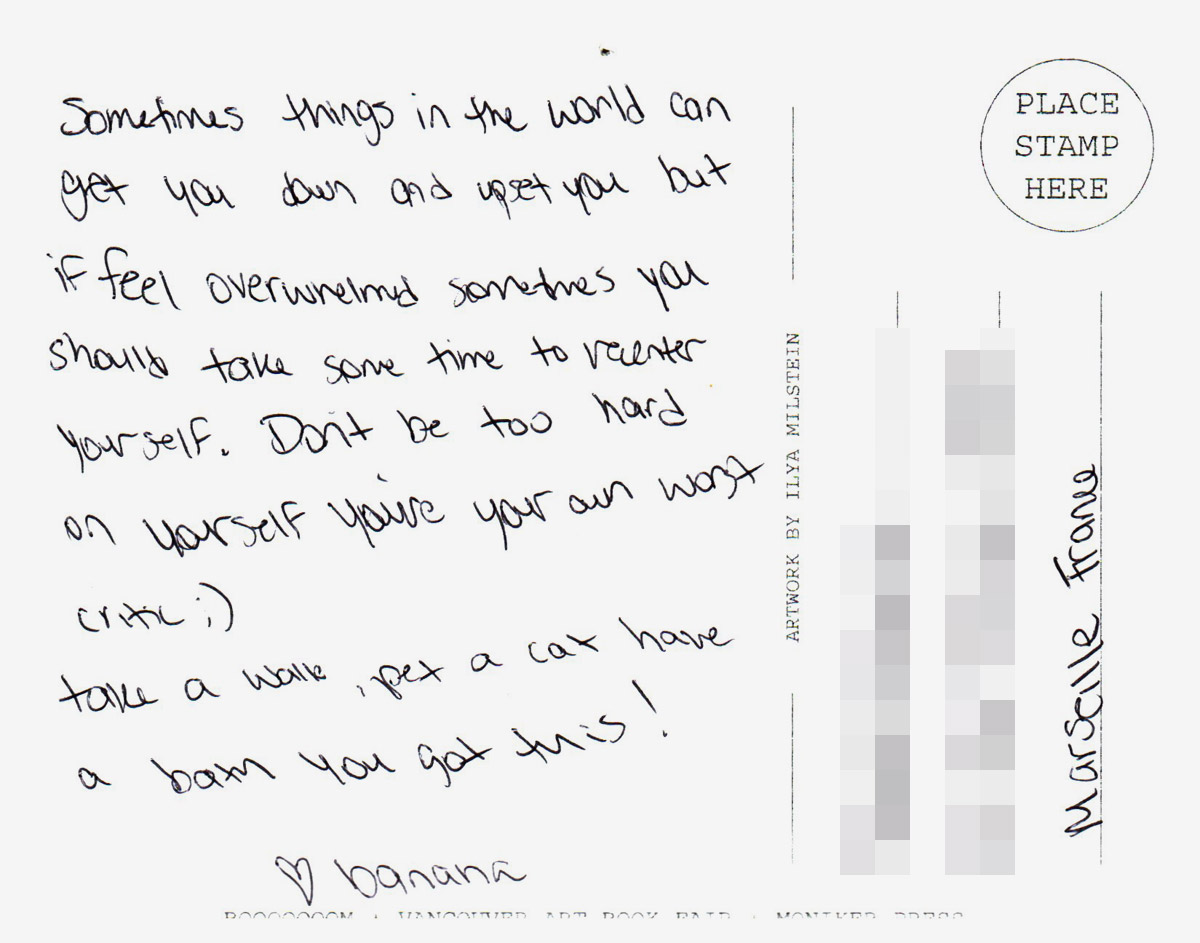 Sometimes things in the world can
get you down and upset you but
if feel overwhelmed sometimes you
should take some time to recenter
yourself. Don't be too hard
on yourself you're your own worst
critic ;)
take a walk, pet a cat have
a bath you got this!
♡ banana
PLACE
STAMP
HERE
ARTWORK BY ILYA MILSTEIN
Marseille France
VANCOUVER ART BOOK FAIR · MONIKER PRESS